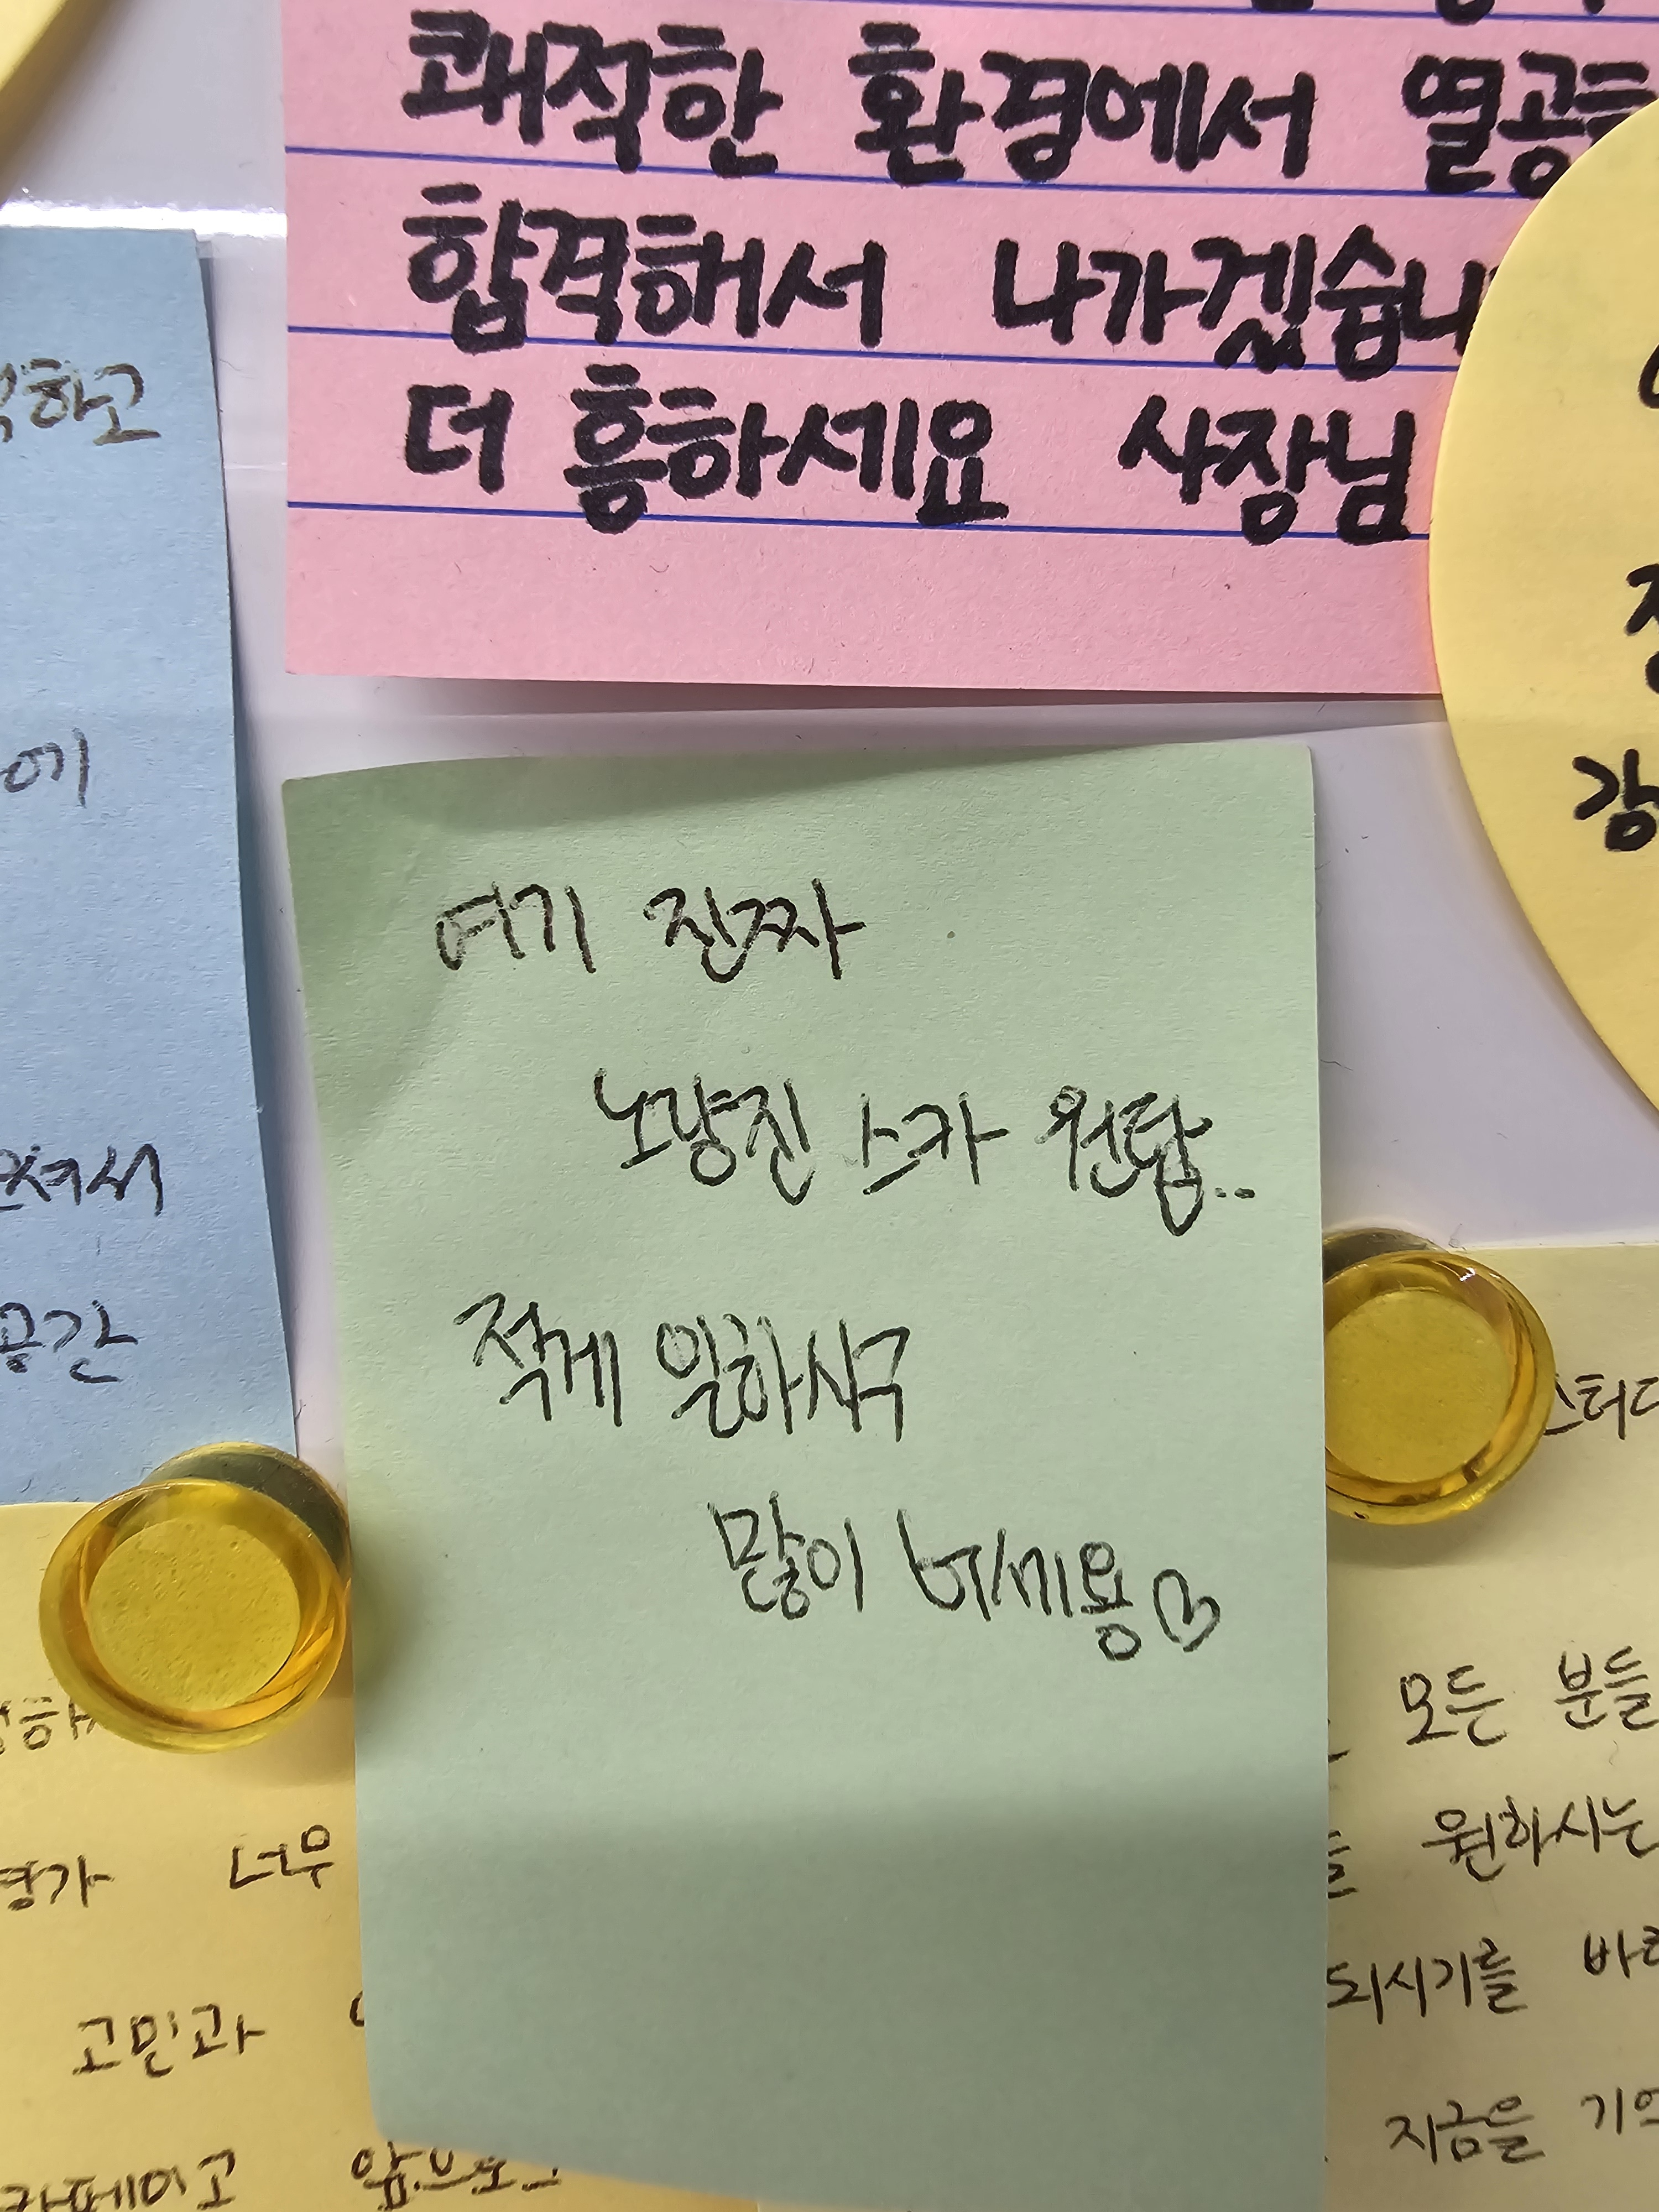 쾌적한 환경에서 열공
합격해서 나가겠습니
더 흥하세요 사장님
하고
에
공간
강
여기 진짜
노량진 스카 원탑..
적게 일하시구
많이 버세용♡
스터디
모든 분들
원하시는
되시기를 바
지금을 기억
너무
고민과
카페이고 앞으로